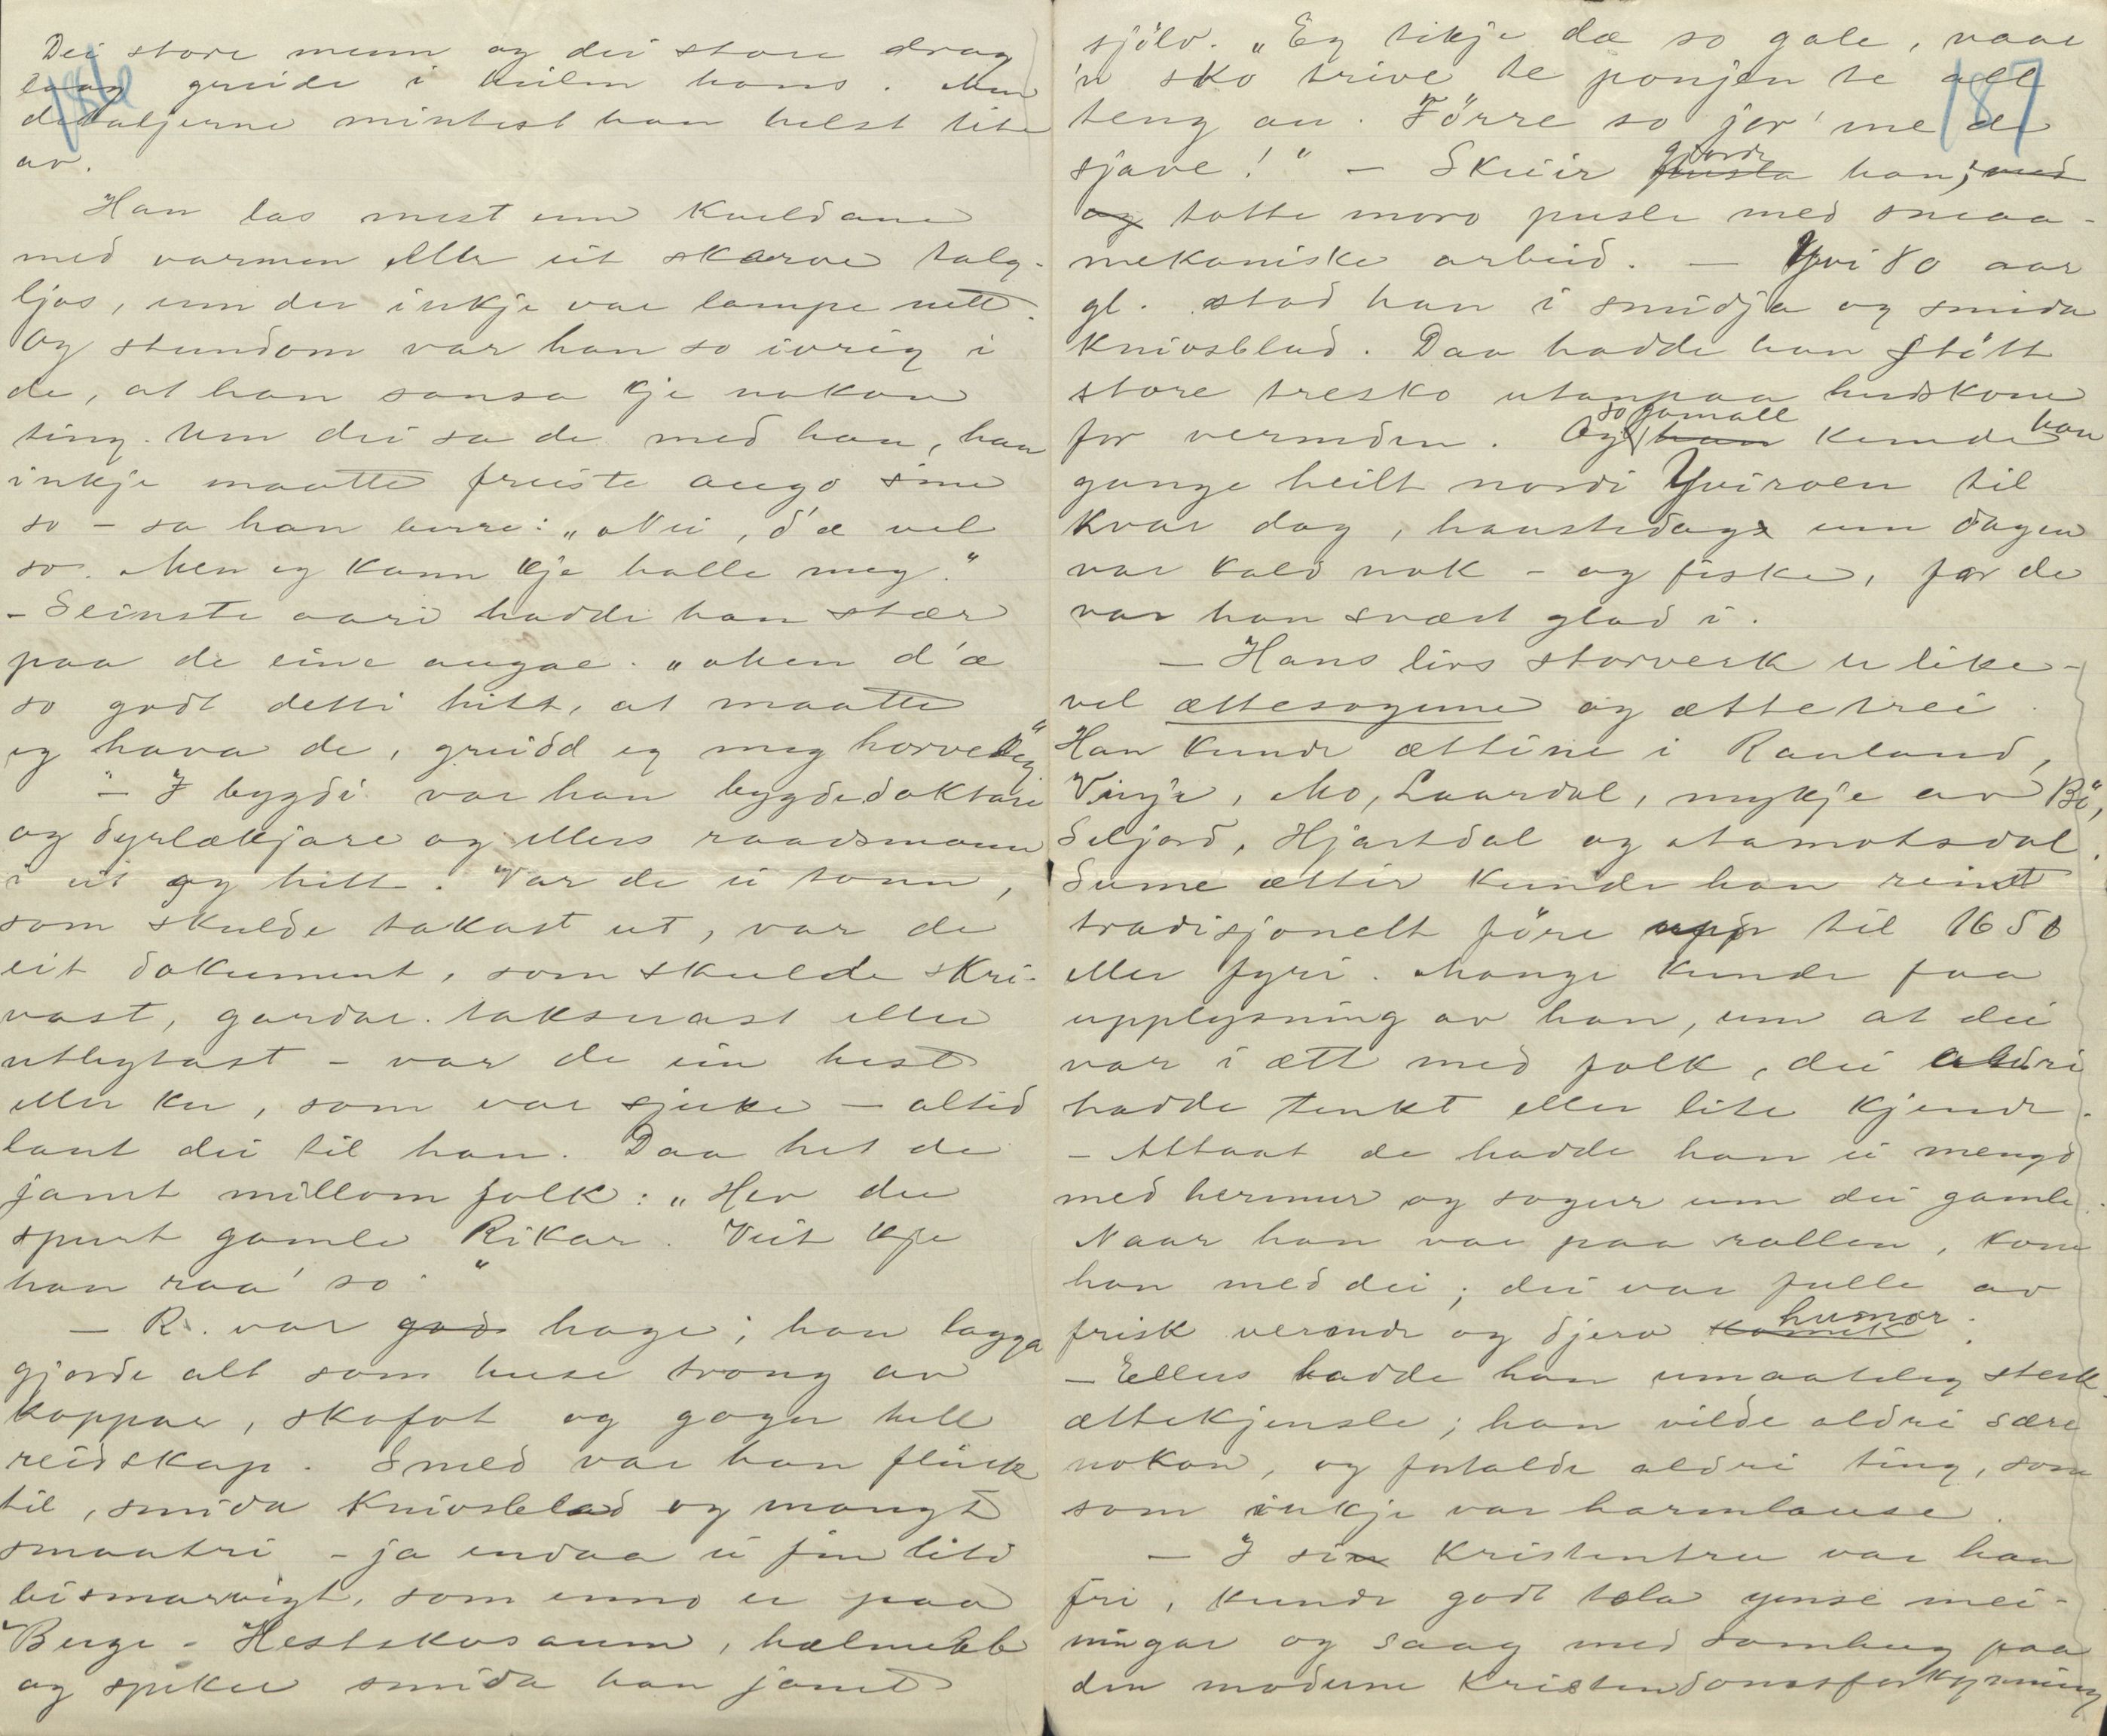 186
Dei store menn og dei store drag
laag greide i heilen hans. Men
detaljerne mintest han helst lite
av.
Han las mest um kveldane
med varmen eller eit skarve talg-
ljos, um der inkje var lampe nett.
Og stundom var han so ivrig i
de, at han sansa kje nokon
ting. Um dei sa de med han, han
inkje maatte freiste augo sine
so – sa han berre: „Nei, d'æ vel
so. Men eg kann kje halle meg."
– Seinste aari hadde han stær
paa de eine auga. „Men d'æ
so godt detti hitt, at maatte
eg hava de, greidd eg meg horveleg"
– I bygdi var han bygdedoktare
og dyrlækjare og ellers raadsmann
i eit og hitt. Var de ei tonn,
som skulde takast ut, var de
eit dokument, som skulde skri-
vast, gardar takserast eller
utbytast – var de ein hest
eller ku, som var sjuke – altid
lant dei til han. Daa het de
jamt millom folk: „Hev du
spurt gamle Rikar. Veit kje
han raa' so."
– R. var god hage; han lagga
gjorde alt som huse trong av
koppar, skafot og gogn till
reidskap. Smed var han flink
til, smida knivsblad og mangt
smaatri – ja endaa ei fin liti
bismarvigt, som enno er paa
Berge. Hestskosaum, hælnebb
og spiker smida han jamt
187
sjölv. „Eg tikje dæ so gale, naar
'n sko trive te ponjen te all
teng an. Förre so jor' me de
sjave!" – Skeier husla gjorde han; med
og totte moro pusle med smaa-
mekaniske arbeid. – Yvi 80 aar
gl. stod han i smidja og smida
knivsblad. Daa hadde han stött
store tresko utanpaa hudskone
for vermden. Og so gamall han kunde han
gange heilt nordi Yvirven til
kvar dag, haustedags um dagen
var kald nok – og fiske, for de
var han svært glad i.
– Hans livs storverk er like-
vel ættesogune og ættetrei.
Han kunde ættine i Rauland,
Vinje, Mo, Laardal, mykje av Bö,
Seljord, Hjartdal og Aamotsdal.
Sume ættir kunde han reint
tradisjonelt före upp til 1650
eller fyri. Mange kunde faa
upplysning av han, um at dei
var i ætt med folk, dei aldri
hadde tenkt eller lite kjende.
– Attaat de hadde han ei mengd
med hermur og sogur um dei gamle.
Naar han var paa rallen, kom
han med dei; dei var fulle av
frisk verande og djerv komik humor.
– Ellers hadde han umaateleg sterk
ættekjensle; han vilde aldri sære
nokon, og fortalde aldri ting, som
som inkje var harmlause.
– I sin kristentru var han
fri, kunde godt tola ymse mei-
ningar og saag med samhug paa
den moderne kristendomsforkynning